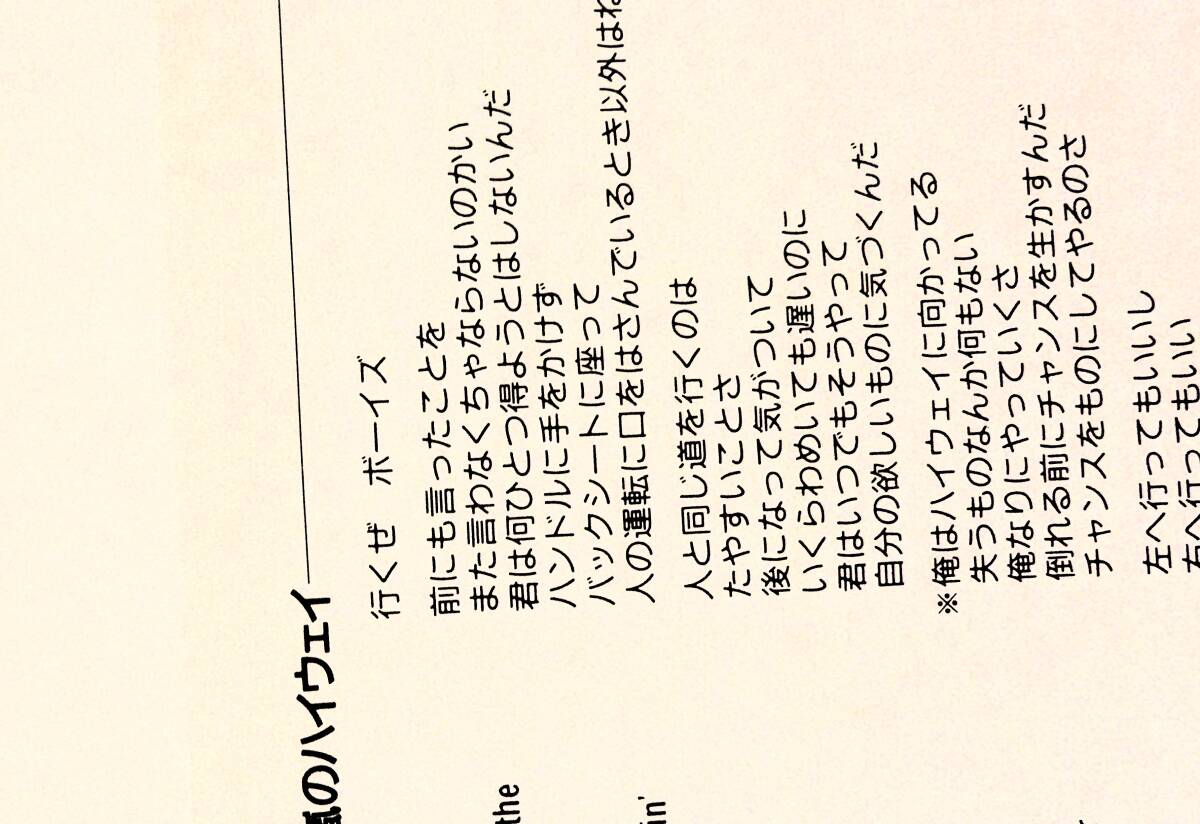 嵐のハイウェイ
行くぜ ボーイズ
前にも言ったことを
また言わなくちゃならないのかい
君は何ひとつ得ようとはしないんだ
ハンドルに手をかけず
バックシートに座って
人の運転に口をはさんでいるとき以外はね
人と同じ道を行くのは
たやすいことさ
後になって気がついて
いくらわめいても遅いのに
君はいつでもそうやって
自分の欲しいものに気づくんだ
※俺はハイウェイに向かってる
失うものなんか何もない
俺なりにやっていくさ
倒れる前にチャンスを生かすんだ
チャンスをものにしてやるのさ
左へ行ってもいいし
右へ行ってもいい
the
in'